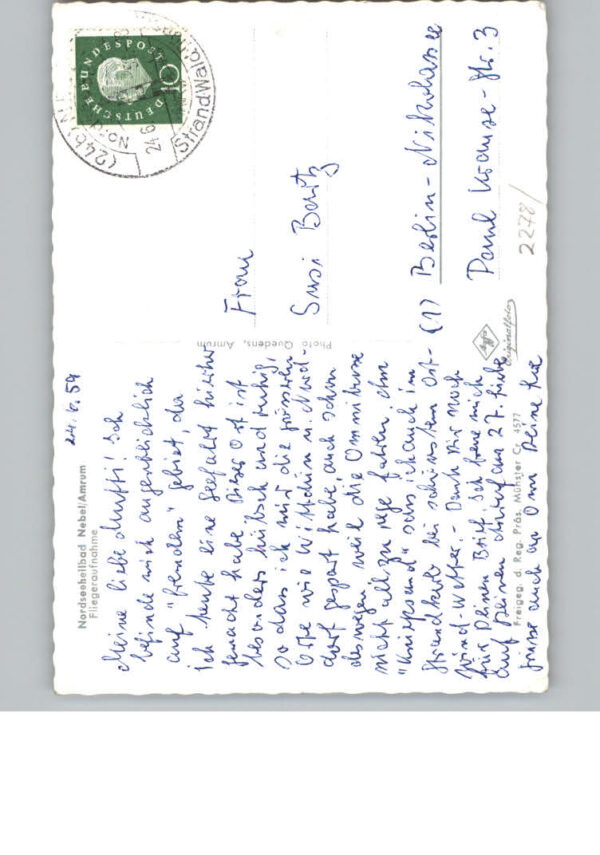 Nordseeheilbad Nebel/Amrum
Fliegeraufnahme
24.6.59
Meine liebe Mutti! Ich
befinde mich augenblicklich
auf "fremdem" Gebiet, da
ich heute eine Seefahrt hierher
gemacht habe. Dieser Ort ist
besonders hübsch und ruhig,
so dass ich mir die grösseren
Orte wie Wittdün u. Nord-
dorf gespart habe, auch schon
deswegen weil die Omnibusse
nicht allzu rege fahren. Am
"Kniepsand" sass ich auch im
Strandkorb bei schönstem Ost-
wind-Wetter. - Dank Dir noch
für Deinen Brief. Ich freue mich
auf Deinen Anruf am 27. Liebe
Grüsse auch an Omi Deine
Photo Quedens, Amrum
Freigeg. d. Reg. Präs. Münster C, 4577
Agfa
Originalfoto
DEUTSCHE BUNDESPOST
10
(24b)
24.6.
Strand
Frau
Susi
(1) Berlin-Nikolassee
Paul Krause-Str. 3
2278/